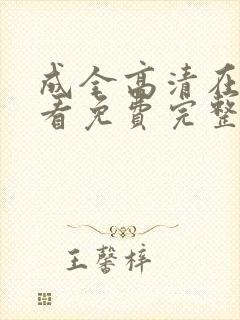 成全高清在
看免费完整
王馨梓